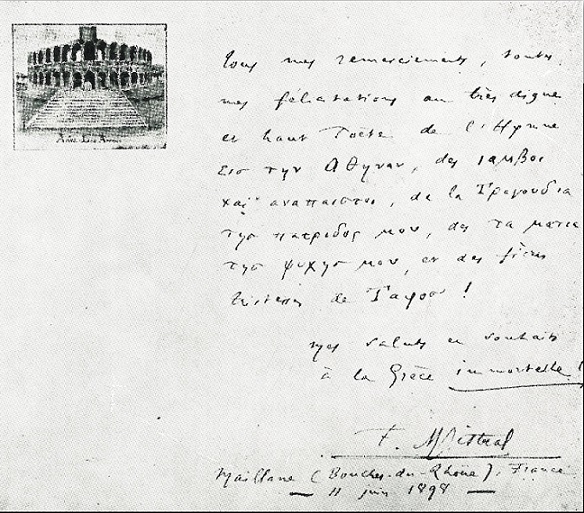 Tous mes remerciements, toutes
mes félicitations au très digne
et haut Poète de l'Hymne
Εισ την Αθηναν, des ιαμβοι
και αναπαιστοι, de la Τραγουδια
τησ πατριδος μου, des τα ματια
τησ ψυχησ μου, et des fières
tristesses de Ταφοσ !
mes saluts et souhaits
à la Grèce immortelle !
F. Mistral
Maillane (Bouches-du-Rhône), France
11 juin 1898